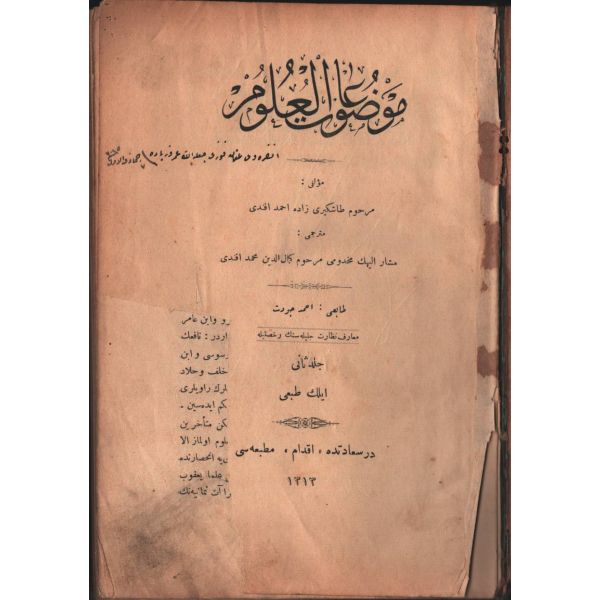 موضوعات العلوم
مؤلفی :
مرحوم طاشکبری زاده احمد افندی
مترجمی :
مشار الیهك مخدومی مرحوم کمال الدین محمد افندی
طابعی : احمد جودت
معارف نظارت جلیله سنك رخصتیله
جلد ثانی
ایلك طبعی
در سعادتده « اقدام » مطبعه سی
١٣١٣
رو وابن عامر
اردر : نافعك
رسوسی و ابن
خلف وخلاد
لمرك راویلری
کم ایده سین ـ
کن متأخرین
لوم اولماز الا
یه انحصارنده
علما یعقوب
را آت ثمانیه نك